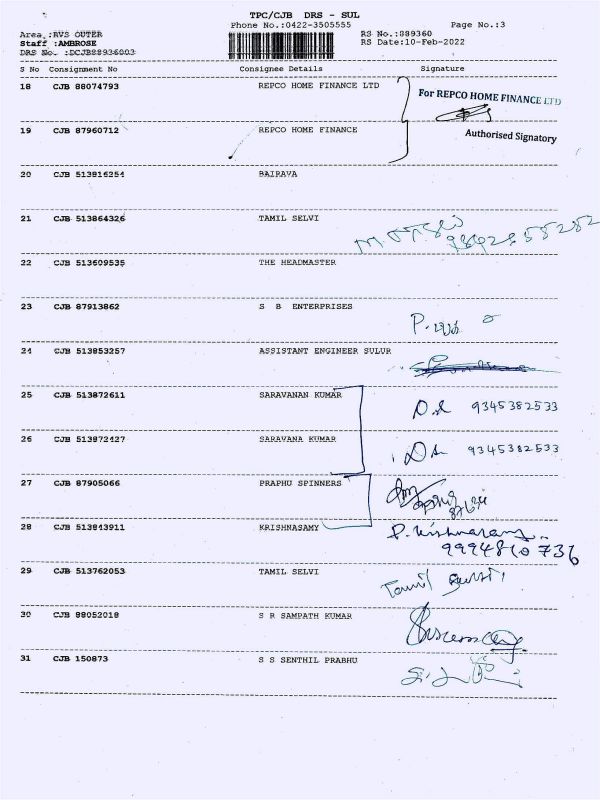 TPC/CJB DRS - SUL
Phone No.:0422-3505555 Page No.:3
Area :RVS OUTER RS No.:889360
Staff :AMBROSE RS Date:10-Feb-2022
DRS No. :DCJB88936003
S No Consignment No Consignee Details Signature
18 CJB 88074793 REPCO HOME FINANCE LTD
For REPCO HOME FINANCE LTD
19 CJB 87960712 REPCO HOME FINANCE
Authorised Signatory
20 CJB 513816254 BAIRAVA
21 CJB 513864326 TAMIL SELVI
22 CJB 513609535 THE HEADMASTER
23 CJB 87913862 S B ENTERPRISES
24 CJB 513853257 ASSISTANT ENGINEER SULUR
25 CJB 513872611 SARAVANAN KUMAR 9345382533
26 CJB 513872427 SARAVANA KUMAR 9345382533
27 CJB 87905066 PRAPHU SPINNERS
28 CJB 513843911 KRISHNASAMY
9994810736
29 CJB 513762053 TAMIL SELVI
30 CJB 88052018 S R SAMPATH KUMAR
31 CJB 150873 S S SENTHIL PRABHU